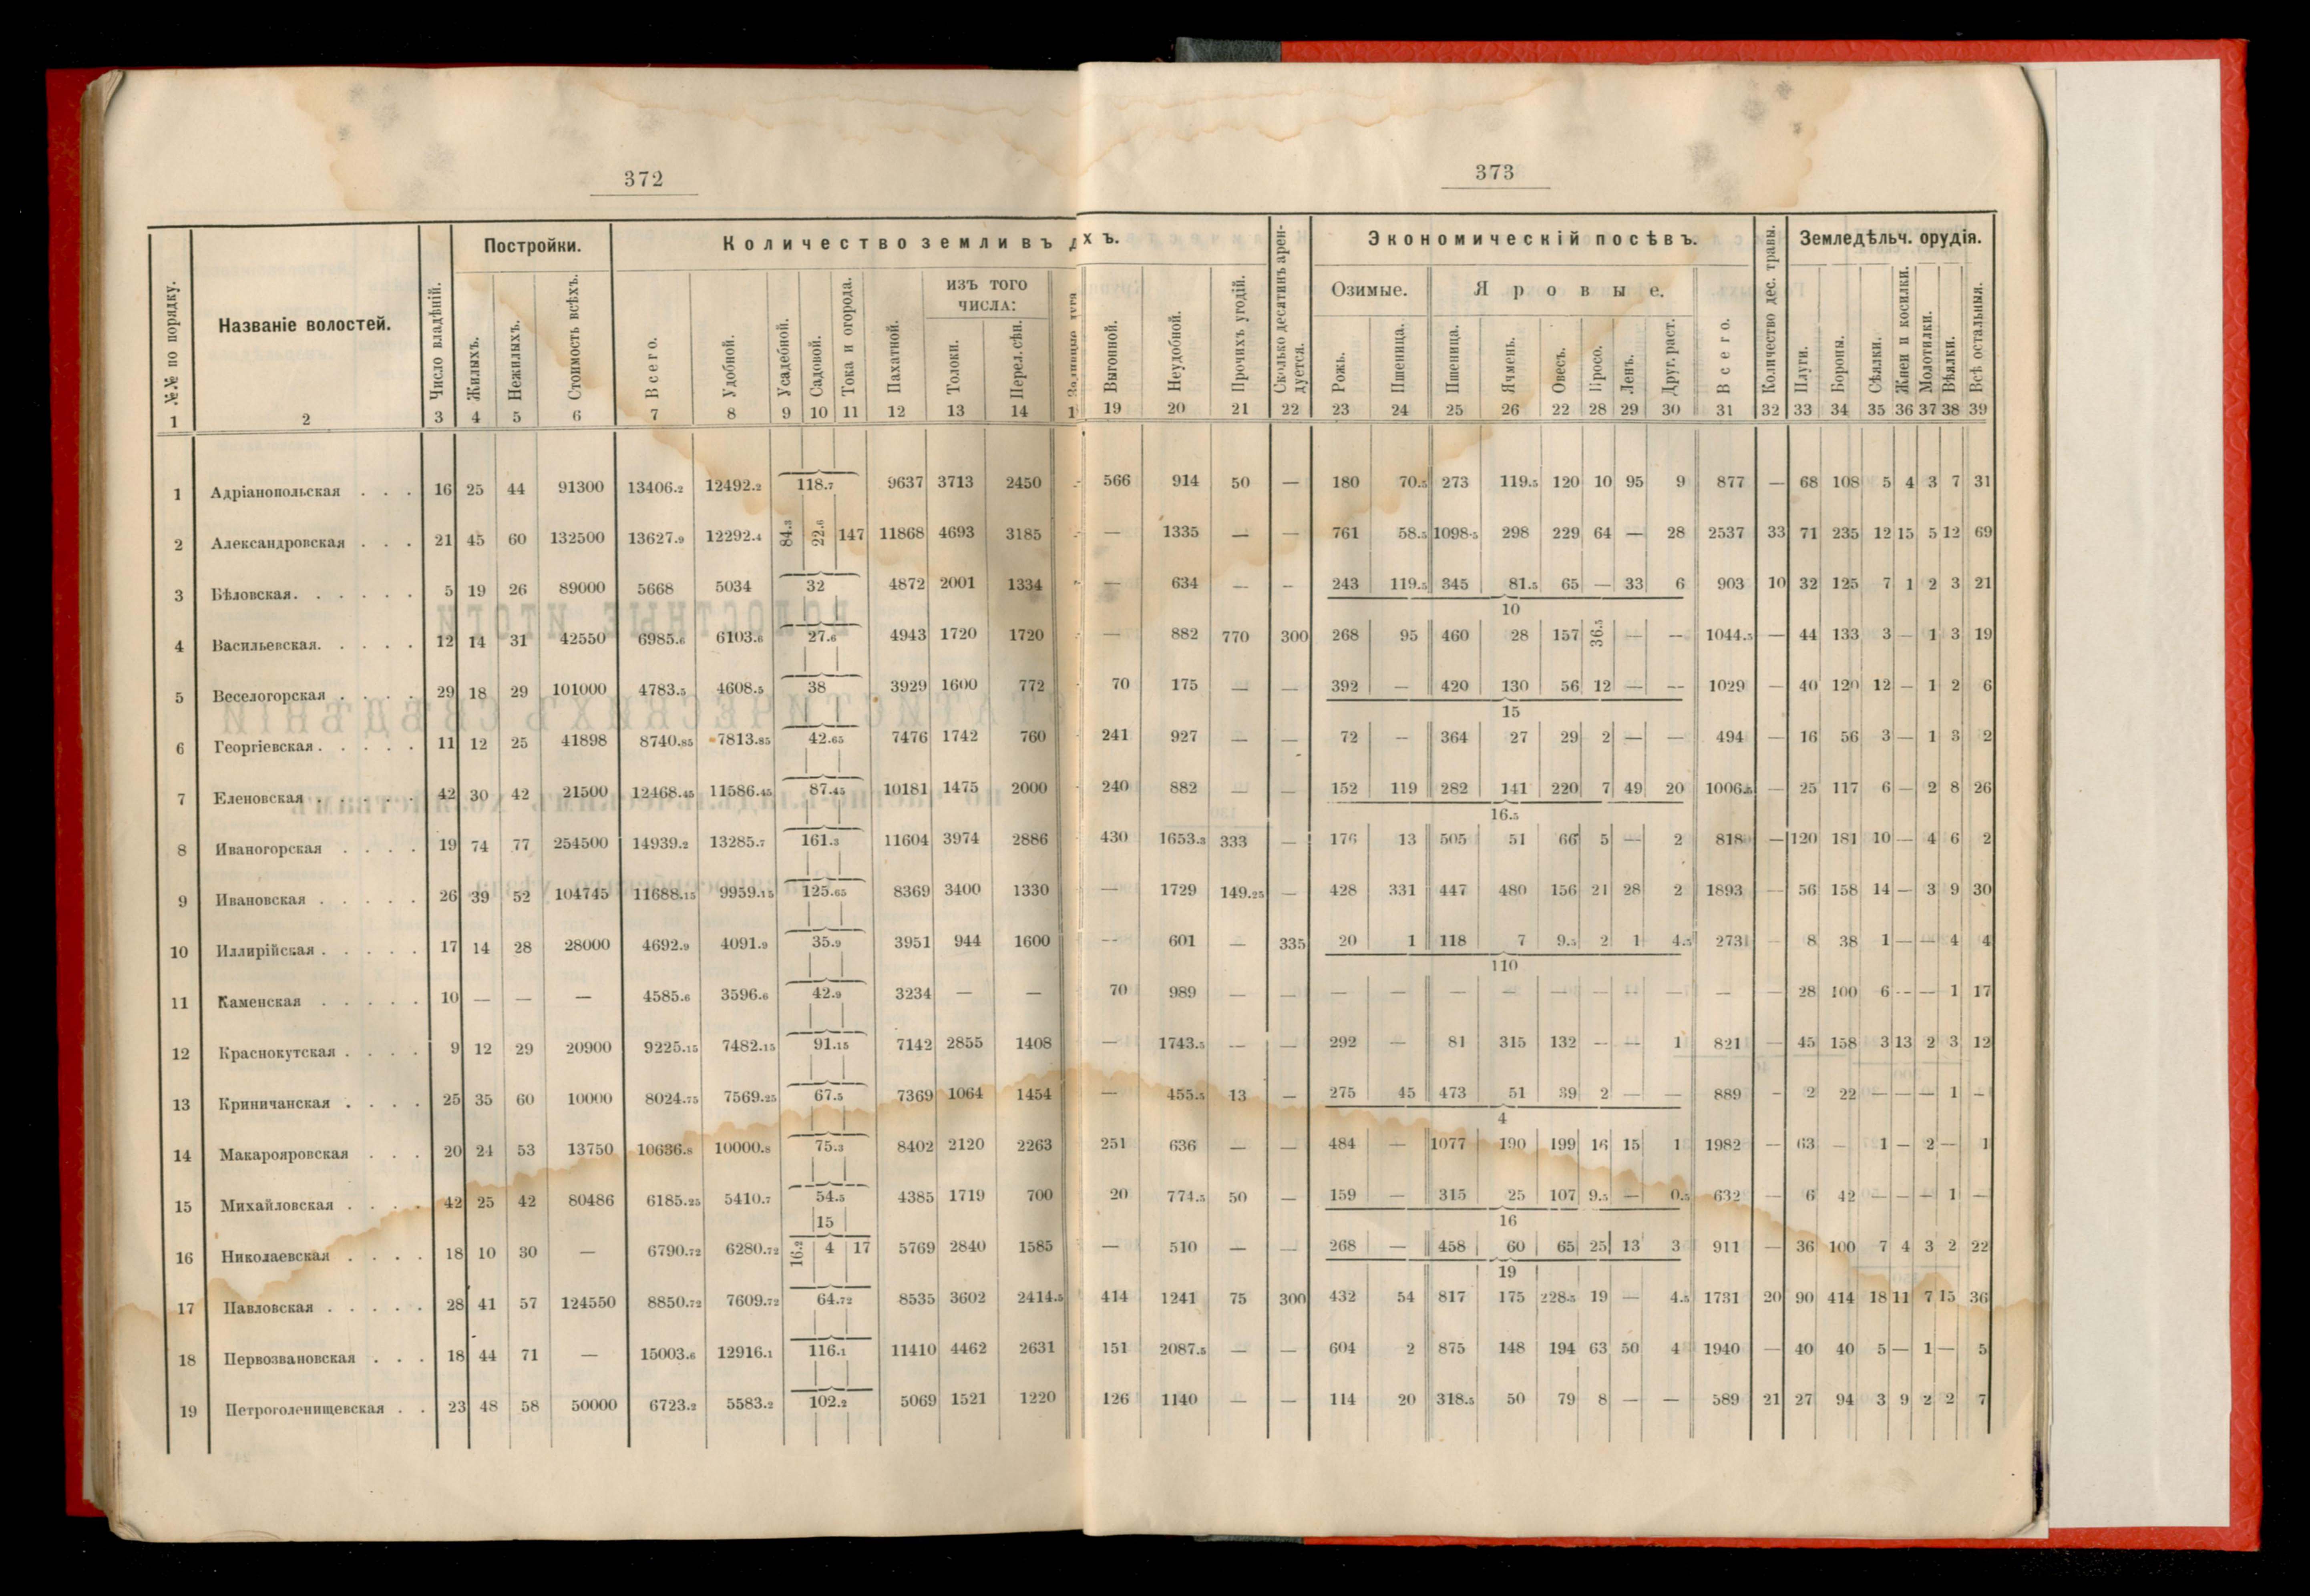 372
№№ по порядку. Названіе волостей. Число владѣній. Постройки. Количество земли въ
Жилыхъ. Нежилыхъ. Стоимость всѣхъ. Всего. Удобной. Усадебной. Садовой. Тока и огорода. Пахатной. изъ того числа: Толоки. Перел. сѣн.
1 2 3 4 5 6 7 8 9 10 11 12 13 14
1 Адріанопольская . . . 16 25 44 91300 13406.2 12492.2 118.7 9637 3713 2450
2 Александровская . . . 21 45 60 132500 13627.9 12292.4 84.3 22.6 147 11868 4693 3185
3 Бѣловская. . . . . . 5 19 26 89000 5668 5034 32 4872 2001 1334
4 Васильевская. . . . . 12 14 31 42550 6985.6 6103.6 27.6 4943 1720 1720
5 Веселогорская . . . . 29 18 29 101000 4783.5 4608.5 38 3929 1600 772
6 Георгіевская . . . . . 11 12 25 41898 8740.85 7813.85 42.65 7476 1742 760
7 Еленовская . . . . . 42 30 42 21500 12468.45 11586.45 87.45 10181 1475 2000
8 Иваногорская . . . . 19 74 77 254500 14939.2 13285.7 161.3 11604 3974 2886
9 Ивановская . . . . . 26 39 52 104745 11688.15 9959.15 125.65 8369 3400 1330
10 Иллирійская . . . . . 17 14 28 28000 4692.9 4091.9 35.9 3951 944 1600
11 Каменская . . . . . 10 — — — 4585.6 3596.6 42.9 3234 — —
12 Краснокутская . . . . 9 12 29 20900 9225.15 7482.15 91.15 7142 2855 1408
13 Криничанская . . . . 25 35 60 10000 8024.75 7569.25 67.5 7369 1064 1454
14 Макарояровская . . . 20 24 53 13750 10636.8 10000.8 75.3 8402 2120 2263
15 Михайловская . . . . 42 25 42 80486 6185.25 5410.7 54.5 4385 1719 700
15
16 Николаевская . . . . 18 10 30 — 6790.72 6280.72 16.2 4 17 5769 2840 1585
17 Павловская . . . . . 28 41 57 124550 8850.72 7609.72 64.72 8535 3602 2414.5
18 Первозвановская . . . 18 44 71 — 15003.6 12916.1 116.1 11410 4462 2631
19 Петроголенищевская . . 23 48 58 50000 6723.2 5583.2 102.2 5069 1521 1220
373
хъ. Сколько десятинъ арендуется. Экономическій посѣвъ. Количество дес. травы. Земледѣльч. орудія.
Озимые. Яровые.
Выгонной. Неудобной. Прочихъ угодій. Рожь. Пшеница. Пшеница. Ячмень. Овесъ. Просо. Ленъ. Друг. раст. Всего. Плуги. Бороны. Сѣялки. Жнеи и косилки. Молотилки. Вѣялки. Всѣ остальныя.
19 20 21 22 23 24 25 26 22 28 29 30 31 32 33 34 35 36 37 38 39
566 914 50 — 180 70.5 273 119.5 120 10 95 9 877 — 68 108 5 4 3 7 31
— 1335 — — 761 58.5 1098.5 298 229 64 — 28 2537 33 71 235 12 15 5 12 69
— 634 — — 243 119.5 345 81.5 65 — 33 6 903 10 32 125 7 1 2 3 21
10
— 882 770 300 268 95 460 28 157 36.5 — — 1044.5 — 44 133 3 — 1 3 19
70 175 — — 392 — 420 130 56 12 — — 1029 — 40 120 12 — 1 2 6
15
241 927 — — 72 — 364 27 29 2 — — 494 — 16 56 3 — 1 3 2
240 882 — — 152 119 282 141 220 7 49 20 1006.5 — 25 117 6 — 2 8 26
16.5
430 1653.3 333 — 176 13 505 51 66 5 — 2 818 — 120 181 10 — 4 6 2
— 1729 149.25 — 428 331 447 480 156 21 28 2 1893 — 56 158 14 — 3 9 30
— 601 — 335 20 1 118 7 9.5 2 1 4.5 273 — 8 38 1 — — 4 4
110
70 989 — — — — — — — — — — — — 28 100 6 — — 1 17
— 1743.5 — — 292 — 81 315 132 — — 1 821 — 45 158 3 13 2 3 12
— 455.5 13 — 275 45 473 51 39 2 — — 889 — 2 22 — — — 1 —
4
251 636 — — 484 — 1077 190 199 16 15 1 1982 — 63 — 1 — 2 — 1
20 774.5 50 — 159 — 315 25 107 9.5 — 0.5 632 — 6 42 — — — 1 —
16
— 510 — — 268 — 458 60 65 25 13 3 911 — 36 100 7 4 3 2 22
19
414 1241 75 300 432 54 817 175 228.5 19 — 4.5 1731 20 90 414 18 11 7 15 36
151 2087.5 — — 604 2 875 148 194 63 50 4 1940 — 40 40 5 — 1 — 5
126 1140 — — 114 20 318.5 50 79 8 — — 589 21 27 94 3 9 2 2 7